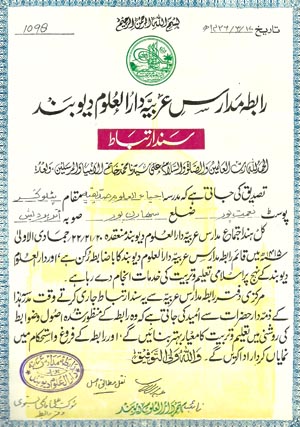 بسم اللہ الرحمن الرحیم
1098
تاریخ
رابطہ مدارس عربیہ دارالعلوم دیوبند
سند ارتباط
الحمد للہ رب العالمین والصلوٰۃ والسلام علیٰ سیدنا محمد خاتم الانبیاء والمرسلین، وبعد!
تصدیق کی جاتی ہے کہ مدرسہ مقام
پوسٹ ضلع سہارن پور صوبہ اترپردیش
کل ہند اجتماع مدارس عربیہ دارالعلوم دیوبند منعقدہ ۲۰/۲۱/۲۲ جمادی الاولیٰ
۱۴۱۵ھ میں قائم رابطہ مدارس عربیہ دارالعلوم دیوبند کا باضابطہ رکن ہے، اور دارالعلوم
دیوبند کے نہج پر اسلامی تعلیم و تربیت کی خدمات انجام دے رہا ہے۔
مرکزی دفتر رابطہ مدارس عربیہ سے یہ سند ارتباط جاری کرتے وقت مدرسہ ہٰذا
کے ذمہ دار حضرات سے امید کی جاتی ہے کہ وہ رابطہ کے منظور شدہ اصول و ضوابط
کی روشنی میں تعلیم و تربیت کا معیار بہتر بنائیں گے، اور رابطہ کے فروغ و استحکام میں
نمایاں کردار ادا کریں گے۔ واللہ ولی التوفیق
نقل مطابق اصل
دارالعلوم دیوبند